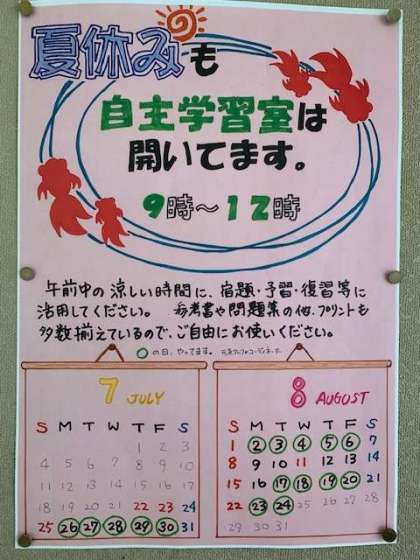 夏休みも
自主学習室は
開いてます。
9時～12時
午前中の涼しい時間に、宿題・予習・復習等に
活用してください。参考書や問題集の他、プリントも
多数揃えているので、ご自由にお使いください。
○の日、やってます。
7 JULY
S M T W T F S
1 2 3
4 5 6 7 8 9 10
11 12 13 14 15 16 17
18 19 20 21 22 23 24
25 26 27 28 29 30 31
8 AUGUST
S M T W T F S
1 2 3 4 5 6 7
8 9 10 11 12 13 14
15 16 17 18 19 20 21
22 23 24 25 26 27 28
29 30 31